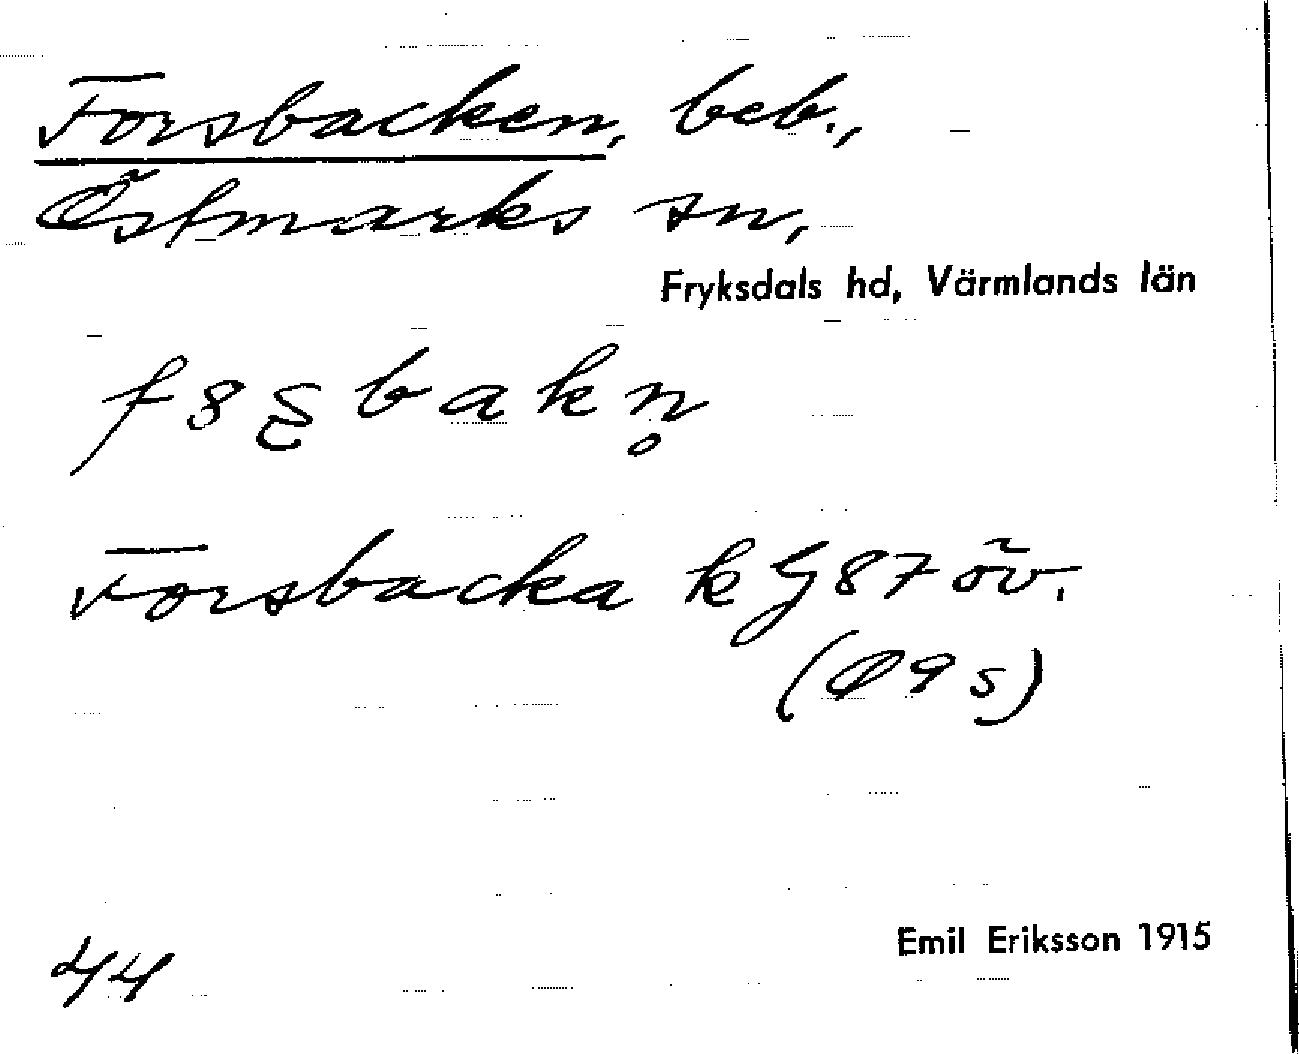 Forsbacken, beb.,
Östmarks sn,
Fryksdals hd, Värmlands län
Forsbacka kG87 öv.
(Ö9s)
Emil Eriksson 1915
44